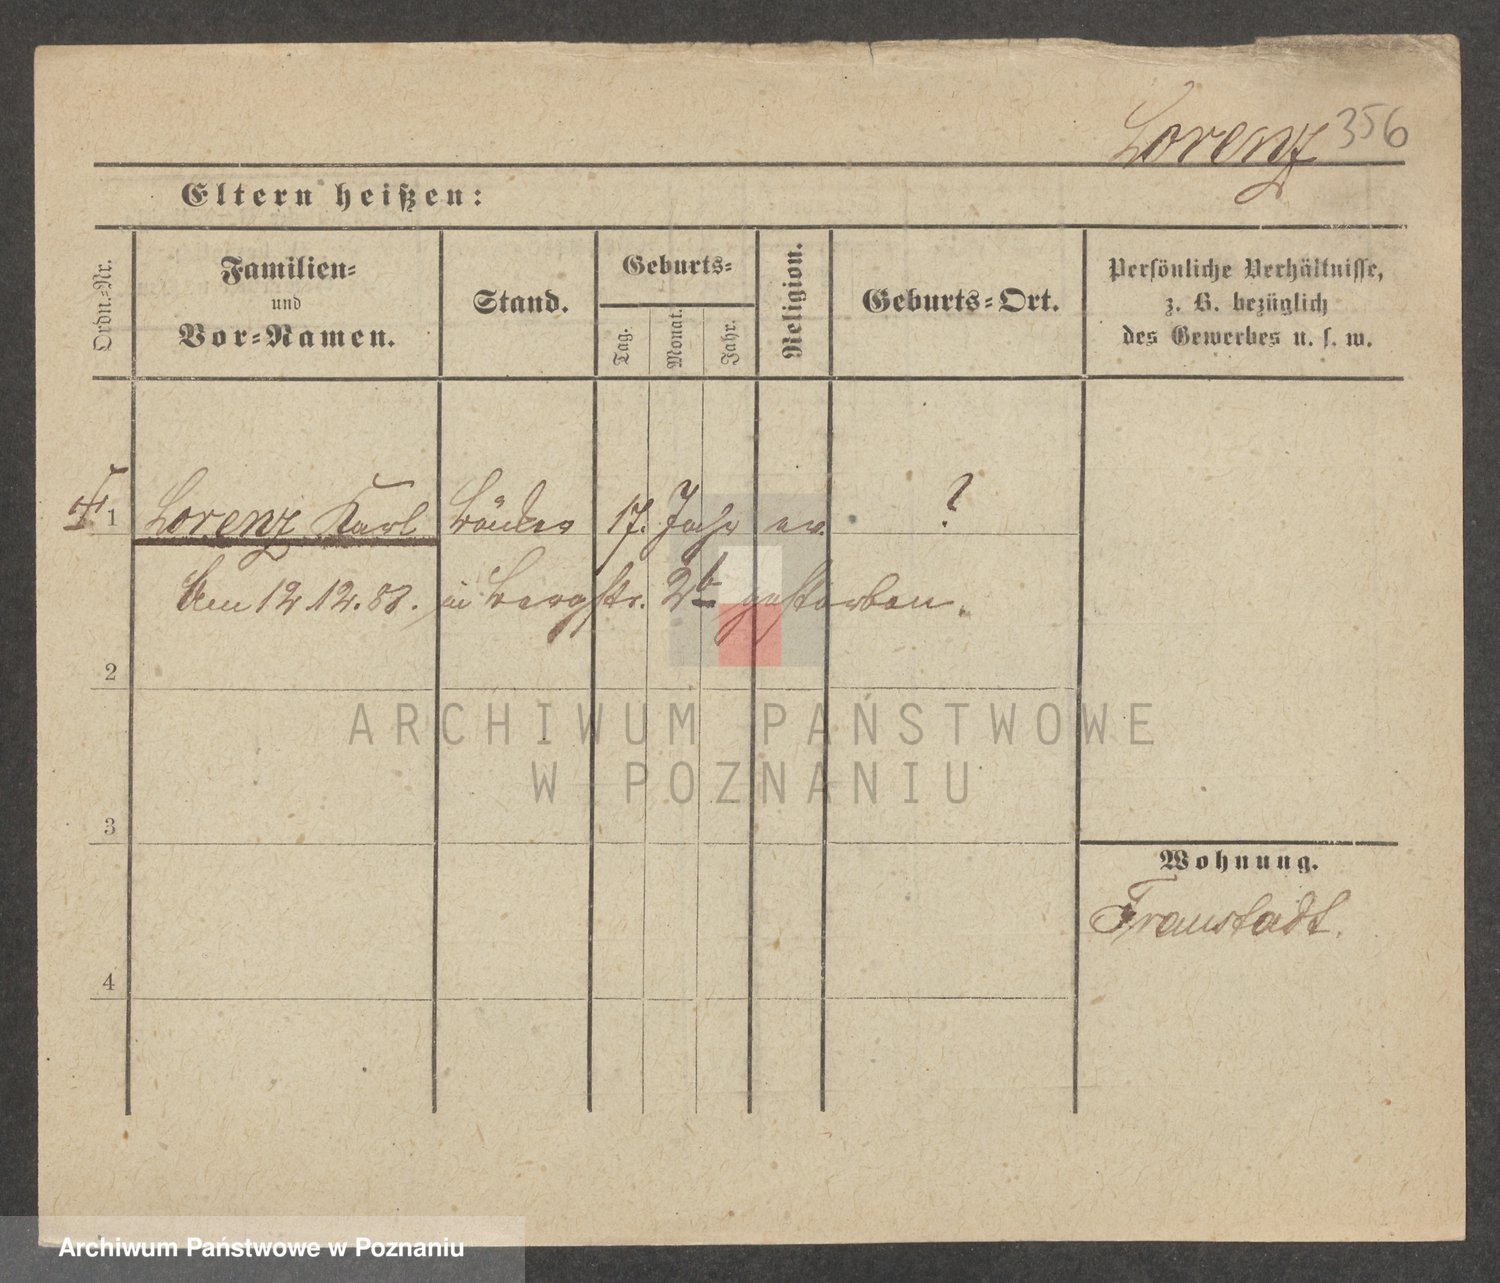 Lorenz 356
Eltern heißen:
Ordn.-Nr.
Familien-
und
Vor-Namen.
Stand.
Geburts-
Tag.
Monat.
Jahr.
Religion.
Geburts-Ort.
Persönliche Verhältnisse,
z. B. bezüglich
des Gewerbes u. s. w.
1 Lorenz Karl 17. Jahr ev. ?
Am 12.12.88. in Bergstr. 2b gestorben.
2
ARCHIWUM PAŃSTWOWE
W POZNANIU
3
Wohnung.
Fraustadt.
4
Archiwum Państwowe w Poznaniu